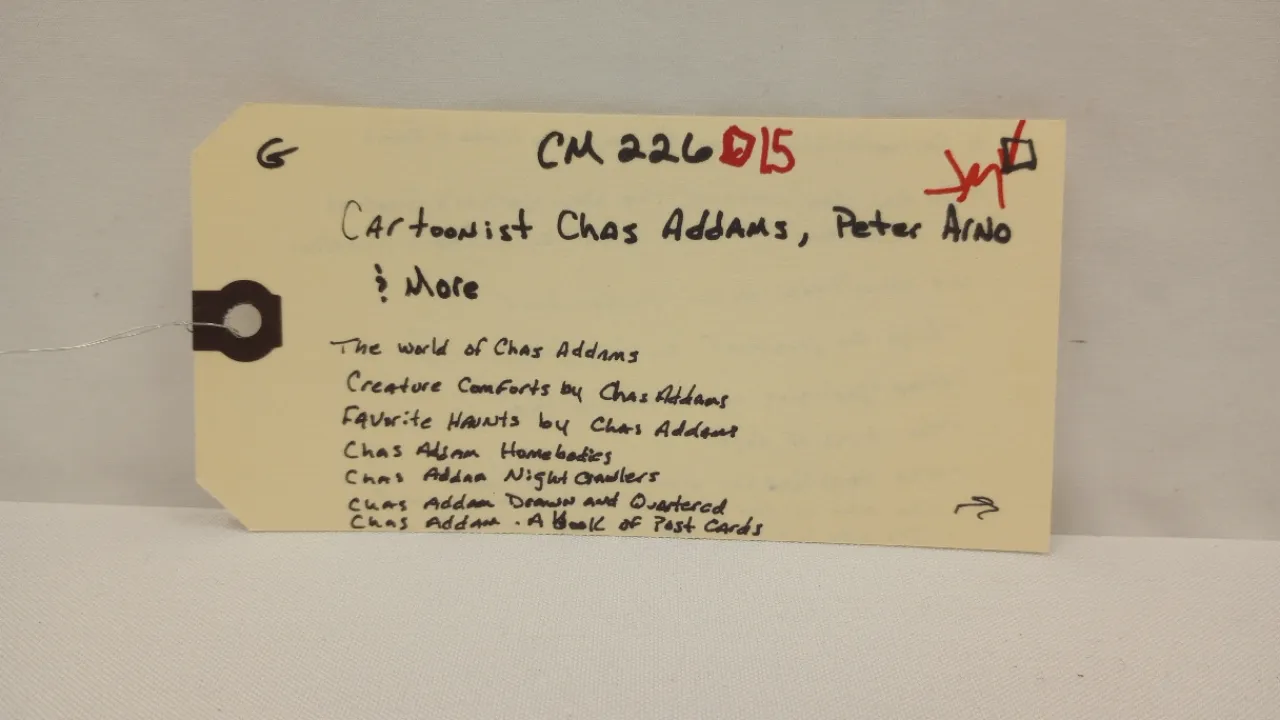 G
CM 226 15
Cartoonist Chas Addams, Peter Arno
& More
The world of Chas Addams
Creature Comforts by Chas Addams
Favorite Haunts by Chas Addams
Chas Addam Homebodies
Chas Addam Night Crawlers
Chas Addam Drawn and Quartered
Chas Addam . A book of Post Cards